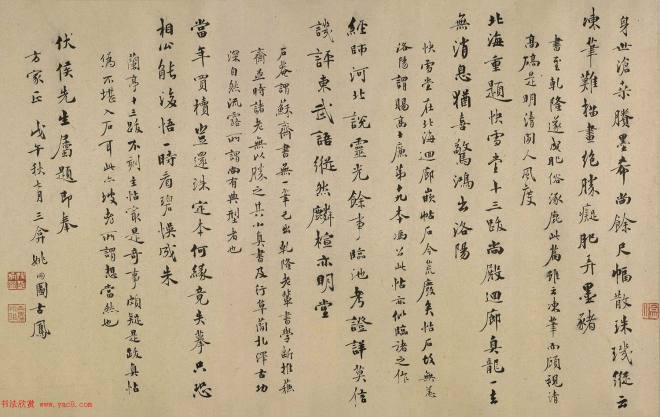 身世滄桑賸墨希尚餘尺幅散珠璣縱云
凍筆難描畫絕勝癡肥弄墨豬
書至乾隆遂成肥俗涿鹿此篇雖云凍筆而顧視清
高確是明清間人風度
北海重題快雪堂十三跋尚殿迴廊真龍一去
無消息猶喜驚鴻出洛陽
快雪堂在北海迴廊嵌帖石今荒廢矣帖石故無恙
洛陽謂賜高士廉第十九本馮公此帖亦似臨諸之作
經師河北說靈光餘事臨池考證詳莫信
譏評東武語縱然麟楦亦明堂
石菴謂蘇齋書無一筆己出乾隆老輩書學斷推蘇
齋並時諸老無以勝之其小真書及行草簡札澤古功
深自然流露所謂尚有典型者也
當年買櫝豈還珠定本何緣竟失摹只恐
相公能浚悟一時看碧悞成朱
蘭亭十三跋不刻主帖最是奇事頗疑是跋真帖
偽不堪入石耳此亦坡老所謂想當然也
伏侯先生屬題即奉
方家正 戊午秋七月三弇姚
國古鳳
书法欣赏 www.yac8.com